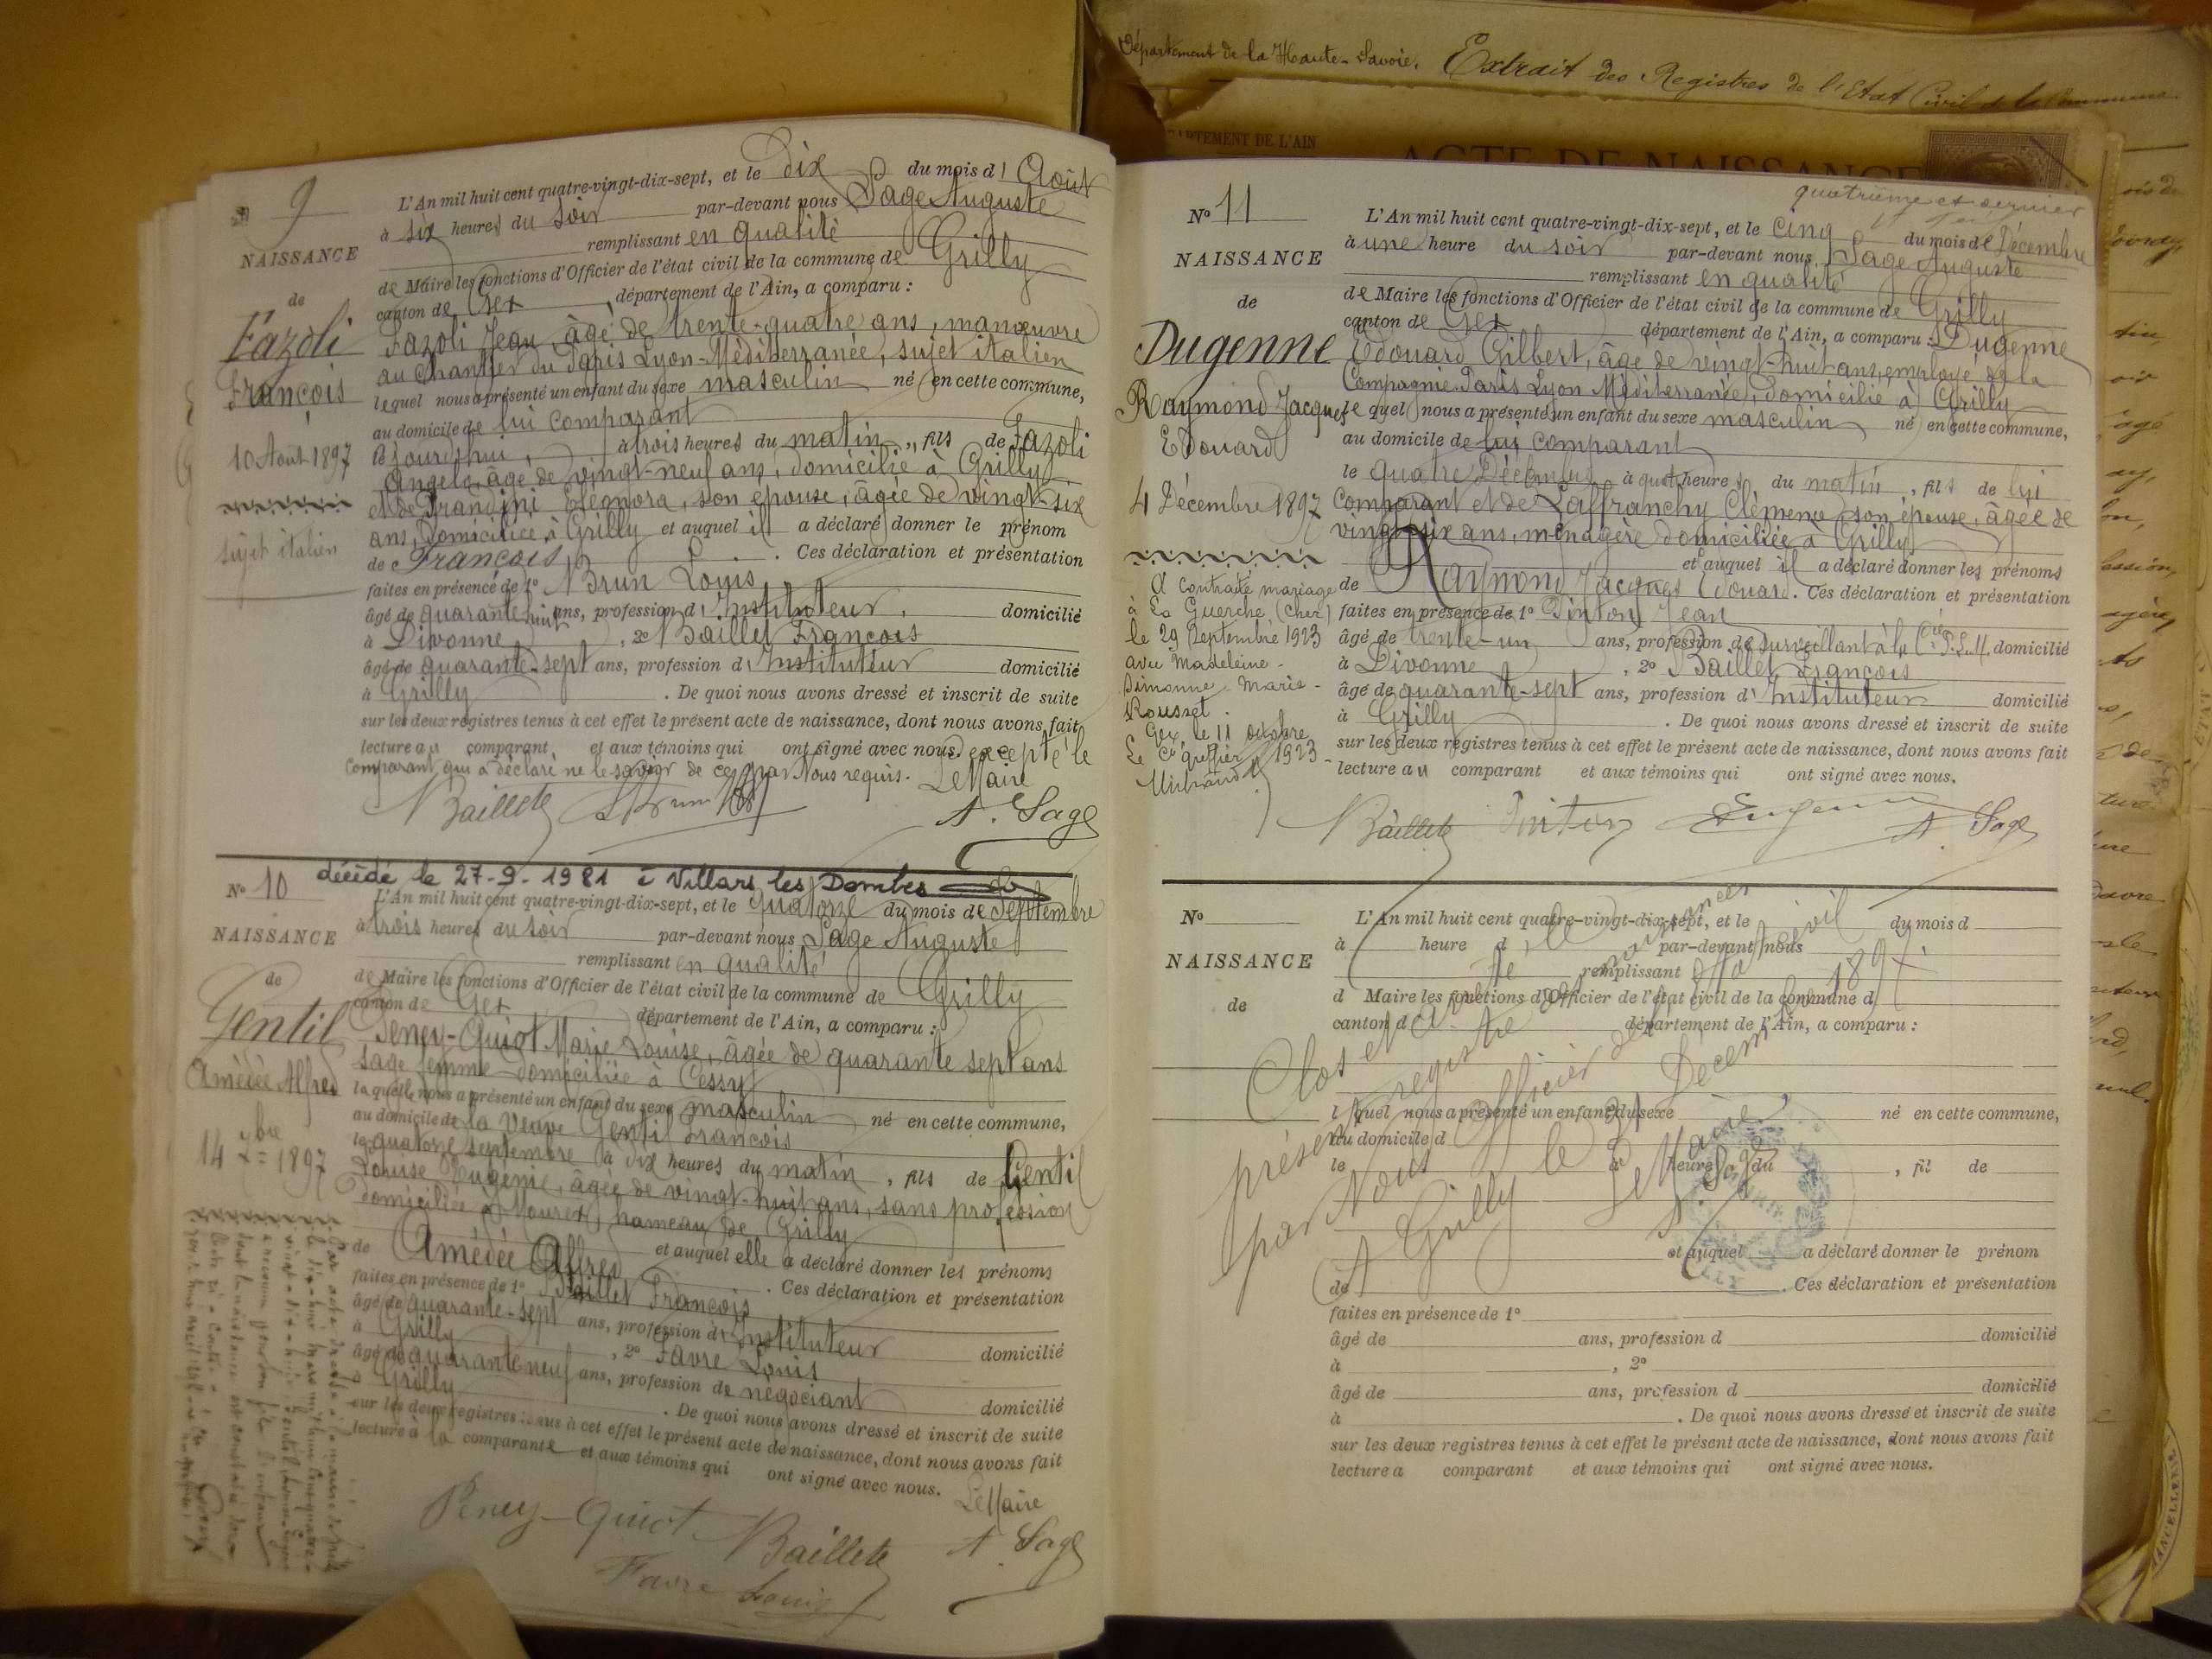 Département de la Haute-Savoie. Extrait des Registres de l'Etat Civil de la Commune
DEPARTEMENT DE L'AIN
ACTE DE NAISSANCE
9
NAISSANCE
de
Fazoli
François
10 Aout 1897
sujet italien
L'An mil huit cent quatre-vingt-dix-sept, et le dix du mois d'Août
à six heures du soir par-devant nous Sage Auguste
remplissant en qualité
de Maire les fonctions d'Officier de l'état civil de la commune de Grilly
canton de Gex, département de l'Ain, a comparu :
Fazoli Jean, âgé de trente-quatre ans, manœuvre
au chantier du Paris Lyon-Méditerranée, sujet italien
lequel nous a présenté un enfant du sexe masculin né en cette commune,
au domicile de lui comparant
le jourd'hui, à trois heures du matin, fils de Fazoli
Angelo, âgé de vingt-neuf ans, domicilié à Grilly
et de Frandini Eléonora, son épouse, âgée de vingt-six
ans, domiciliée à Grilly et auquel il a déclaré donner le prénom
de François. Ces déclaration et présentation
faites en présence de 1° Brun Louis
âgé de quarante huit ans, profession d'Instituteur, domicilié
à Divonne, 2° Baillet François
âgé de quarante-sept ans, profession d'Instituteur domicilié
à Grilly. De quoi nous avons dressé et inscrit de suite
sur les deux registres tenus à cet effet le présent acte de naissance, dont nous avons fait
lecture au comparant et aux témoins qui ont signé avec nous excepté le
comparant qui a déclaré ne le savoir de ce par Nous requis. Le Maire
Baillet Brun A. Sage
décédé le 27-9-1981 à Villars les Dombes
N° 10
NAISSANCE
de
Gentil
Amédée Alfred
14 7bre 1897
L'An mil huit cent quatre-vingt-dix-sept, et le quatorze du mois de Septembre
à trois heures du soir par-devant nous Sage Auguste
remplissant en qualité
de Maire les fonctions d'Officier de l'état civil de la commune de Grilly
canton de Gex département de l'Ain, a comparu :
Peney-Quiot Marie Louise, âgée de quarante sept ans
sage femme domiciliée à Cessy
laquelle nous a présenté un enfant du sexe masculin né en cette commune,
au domicile de la Veuve Gentil François
le quatorze septembre à dix heures du matin, fils de Gentil
Louise Eugénie, âgée de vingt-huit ans, sans profession
domiciliée à Mourex, hameau de Grilly
et auquel elle a déclaré donner les prénoms
de Amédée Alfred. Ces déclaration et présentation
faites en présence de 1° Baillet François
âgé de quarante-sept ans, profession d'Instituteur
à Grilly, 2° Favre Louis domicilié
âgé de quarante neuf ans, profession de négociant
à Grilly domicilié
. De quoi nous avons dressé et inscrit de suite
sur les deux registres tenus à cet effet le présent acte de naissance, dont nous avons fait
lecture à la comparante et aux témoins qui ont signé avec nous.
Le Maire
Peney-Quiot Baillet A. Sage
Favre Louis
quatrième et dernier
N° 11
NAISSANCE
de
Dugenne
Raymond Jacques
Edouard
4 Décembre 1897
A contracté mariage
à La Guerche (Cher)
le 29 Septembre 1923
avec Madeleine-
Simonne-Marie-
Rousset.
Gex, le 11 octobre
1923
Le Cis greffier
L'An mil huit cent quatre-vingt-dix-sept, et le cinq du mois de Décembre
à une heure du soir par-devant nous Sage Auguste
remplissant en qualité
de Maire les fonctions d'Officier de l'état civil de la commune de Grilly
canton de Gex département de l'Ain, a comparu : Dugenne
Edouard Gilbert, âgé de vingt-huit ans, employé de la
Compagnie Paris Lyon Méditerranée, domicilié à Grilly
lequel nous a présenté un enfant du sexe masculin né en cette commune,
au domicile de lui comparant
le quatre Décembre à quatre heures du matin, fils de lui
comparant et de Laffranchy Clémence son épouse, âgée de
vingt-six ans, ménagère domiciliée à Grilly
et auquel il a déclaré donner les prénoms
de Raymond Jacques Edouard. Ces déclaration et présentation
faites en présence de 1° Pinton Jean
âgé de trente-un ans, profession de surveillant à la Cie P.L.M. domicilié
à Divonne, 2° Baillet François
âgé de quarante-sept ans, profession d'Instituteur domicilié
à Grilly. De quoi nous avons dressé et inscrit de suite
sur les deux registres tenus à cet effet le présent acte de naissance, dont nous avons fait
lecture au comparant et aux témoins qui ont signé avec nous.
Baillet Pinton Dugenne A. Sage
N°
NAISSANCE
de
L'An mil huit cent quatre-vingt-dix-sept, et le du mois d
à heure d par-devant nous
remplissant
d Maire les fonctions d'Officier de l'état civil de la commune d
canton d département de l'Ain, a comparu :
l quel nous a présenté un enfant du sexe né en cette commune,
au domicile d
le à heure du , fil de
et auquel a déclaré donner le prénom
de . Ces déclaration et présentation
faites en présence de 1°
âgé de ans, profession d domicilié
à , 2°
âgé de ans, profession d domicilié
à . De quoi nous avons dressé et inscrit de suite
sur les deux registres tenus à cet effet le présent acte de naissance, dont nous avons fait
lecture a comparant et aux témoins qui ont signé avec nous.
Clos et arrêté le
présent registre des naissances
par Nous Officier de l'état civil
A Grilly le 31 Décembre 1897.
Le Maire,
A. Sage